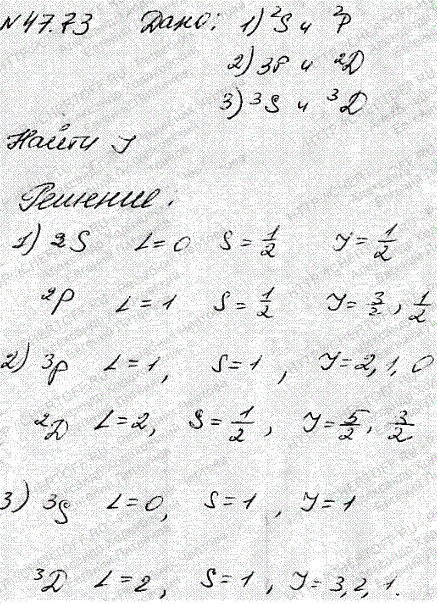 №47.73 Дано: 1) ²S и ²P
2) 3P и ²D
3) ³S и ³D
Найти J
Решение.
1) 2S L=0 S=1/2 J=1/2
2P L=1 S=1/2 J=3/2, 1/2
2) ³P L=1, S=1, J=2,1,0
²D L=2, S=1/2, J=5/2, 3/2
3) ³S L=0, S=1, J=1
³D L=2, S=1, J=3,2,1.